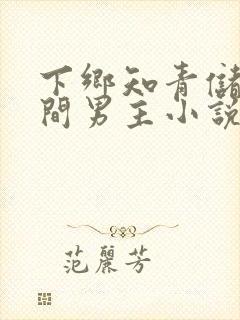 下鄉知青儲
間男主小說
范麗芳